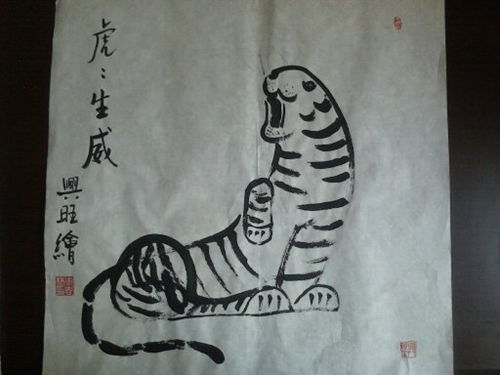 虎﹕生威
興旺繪